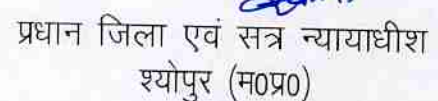 प्रधान जिला एवं सत्र न्यायाधीश
श्योपुर (म0प्र0)